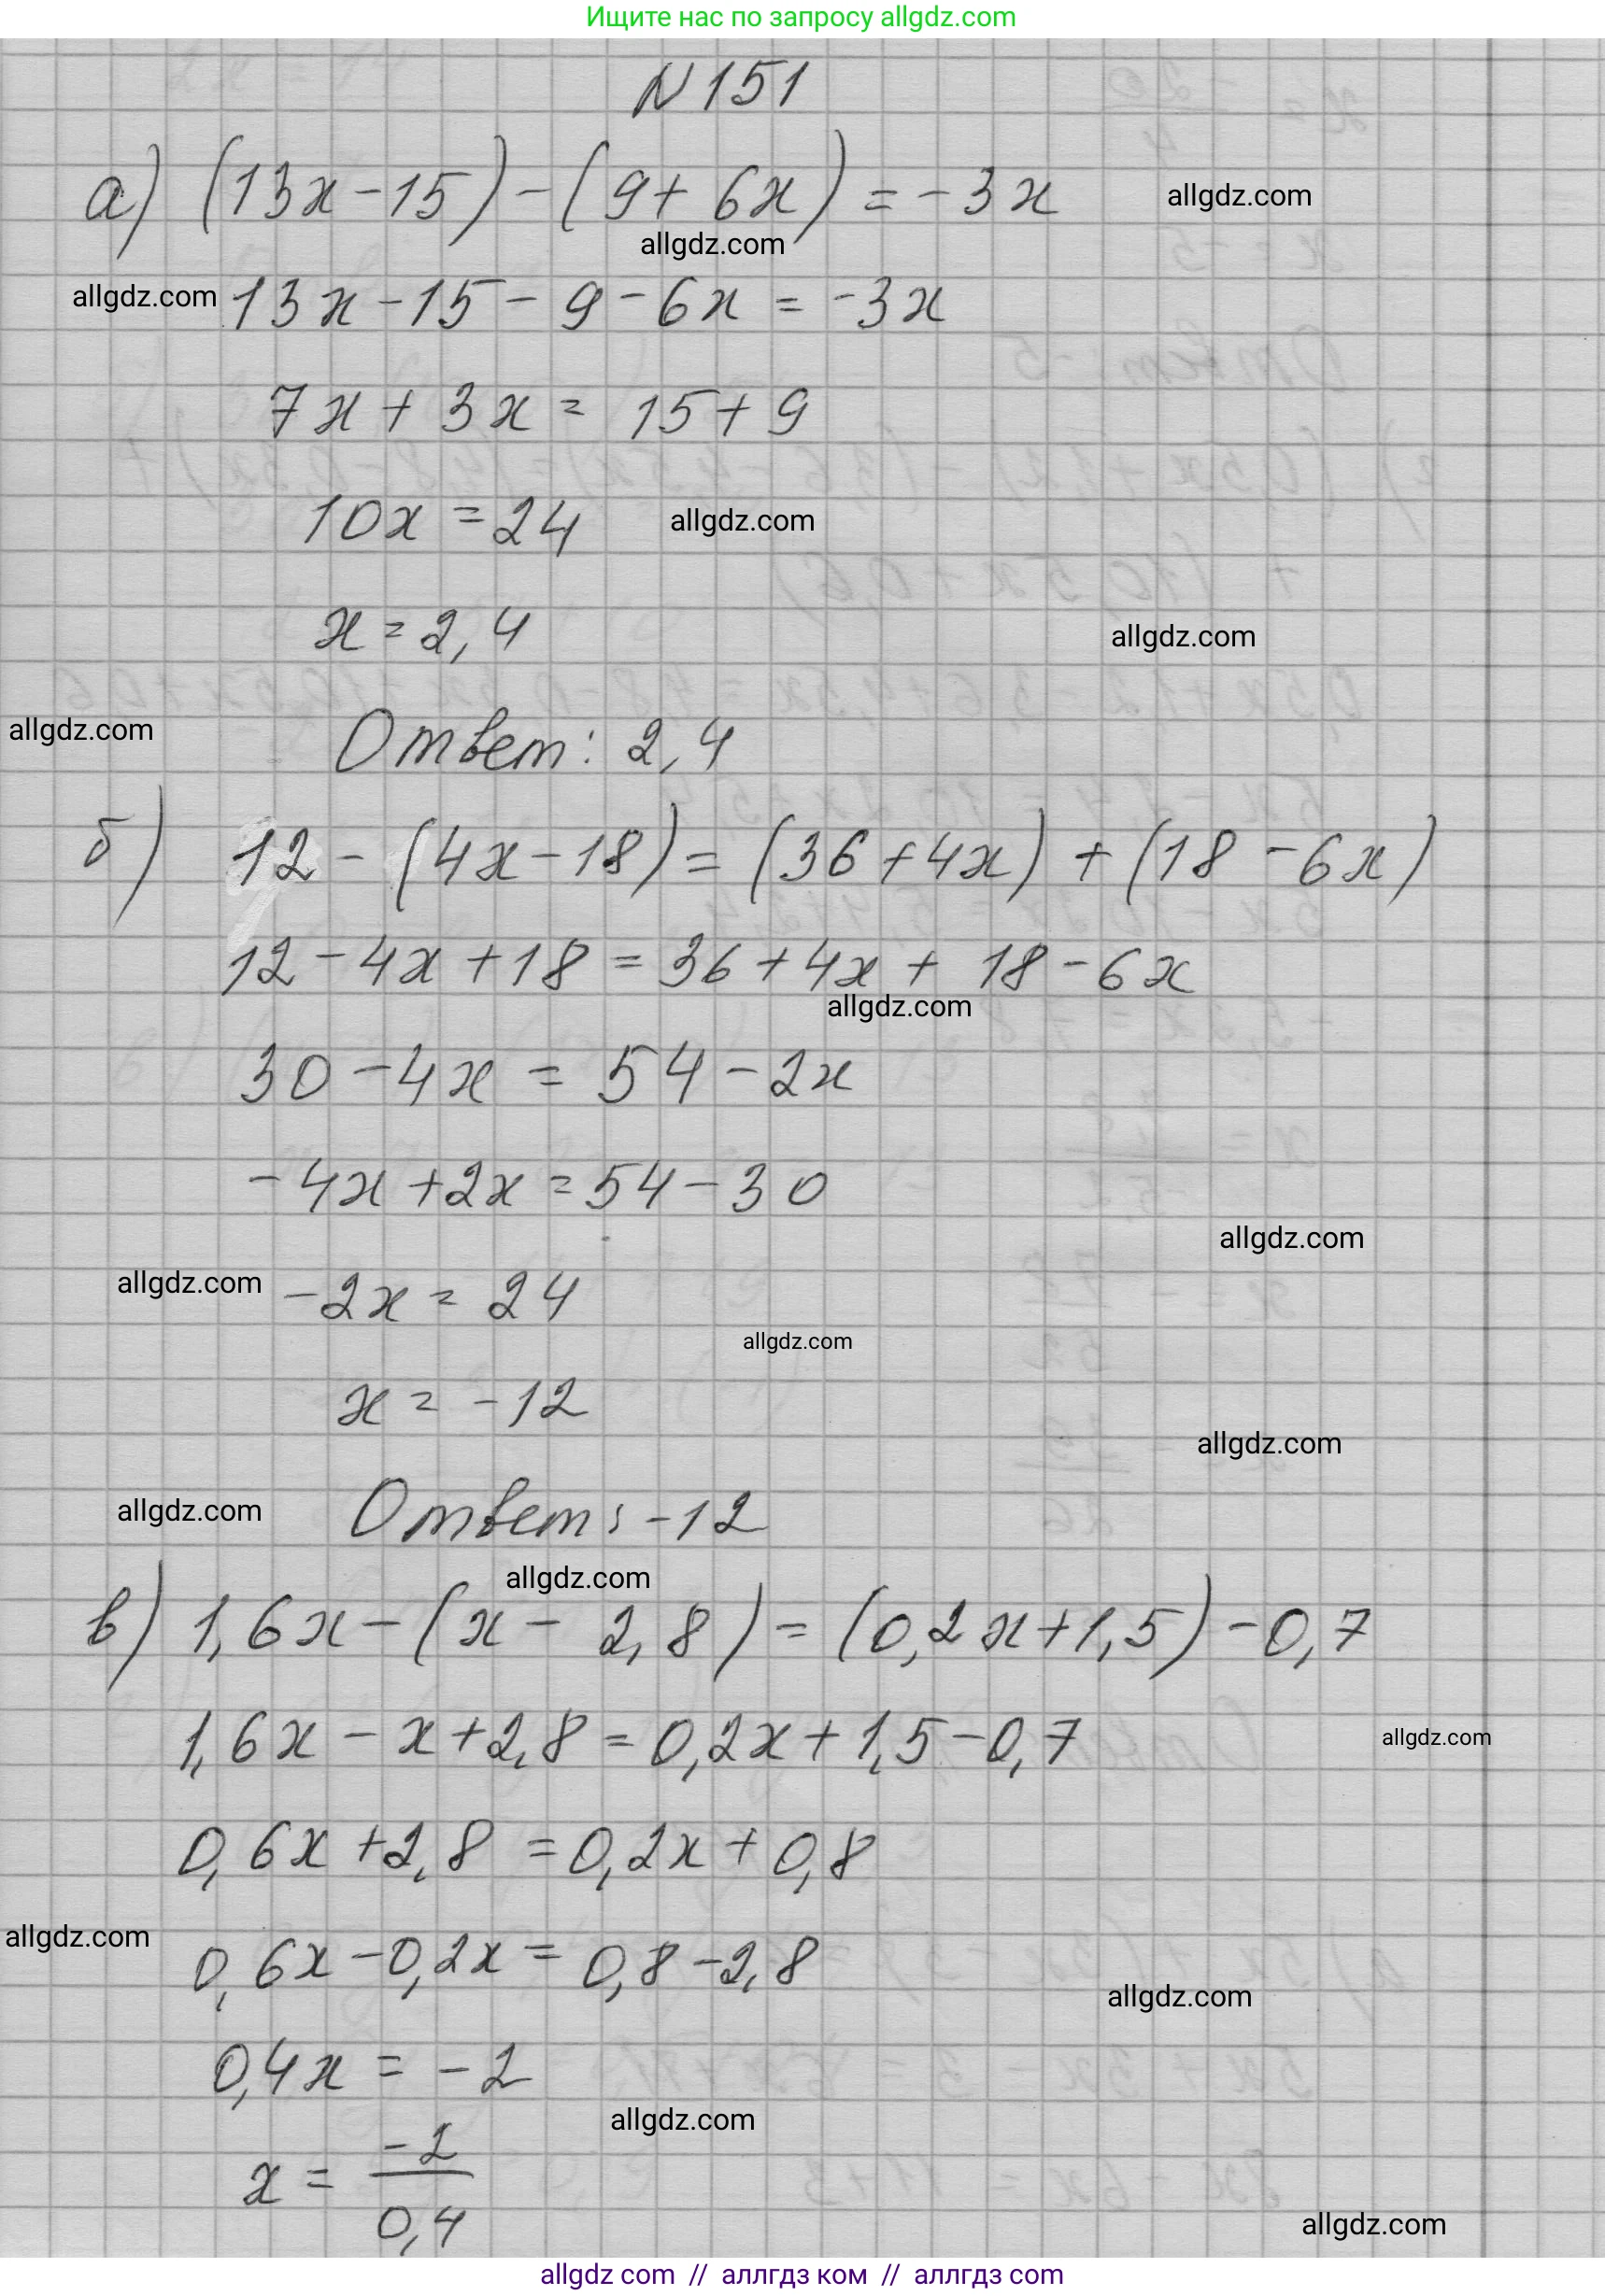 Ищите нас по запросу allgdz.com
N151
а) (13x-15)-(9+6x)=-3x
allgdz.com
allgdz.com
allgdz.com
13x-15-9-6x=-3x
7x+3x=15+9
10x=24
allgdz.com
x=2,4
allgdz.com
allgdz.com
Ответ: 2,4
б) 12-(4x-18)=(36+4x)+(18-6x)
12-4x+18=36+4x+18-6x
allgdz.com
30-4x=54-2x
-4x+2x=54-30
allgdz.com
allgdz.com
-2x=24
allgdz.com
x=-12
allgdz.com
allgdz.com
Ответ: -12
allgdz.com
в) 1,6x-(x-2,8)=(0,2x+1,5)-0,7
1,6x-x+2,8=0,2x+1,5-0,7
allgdz.com
0,6x+2,8=0,2x+0,8
allgdz.com
0,6x-0,2x=0,8-2,8
allgdz.com
0,4x=-2
allgdz.com
x=-2/0,4
allgdz.com
allgdz com // аллгдз ком // аллгдз com